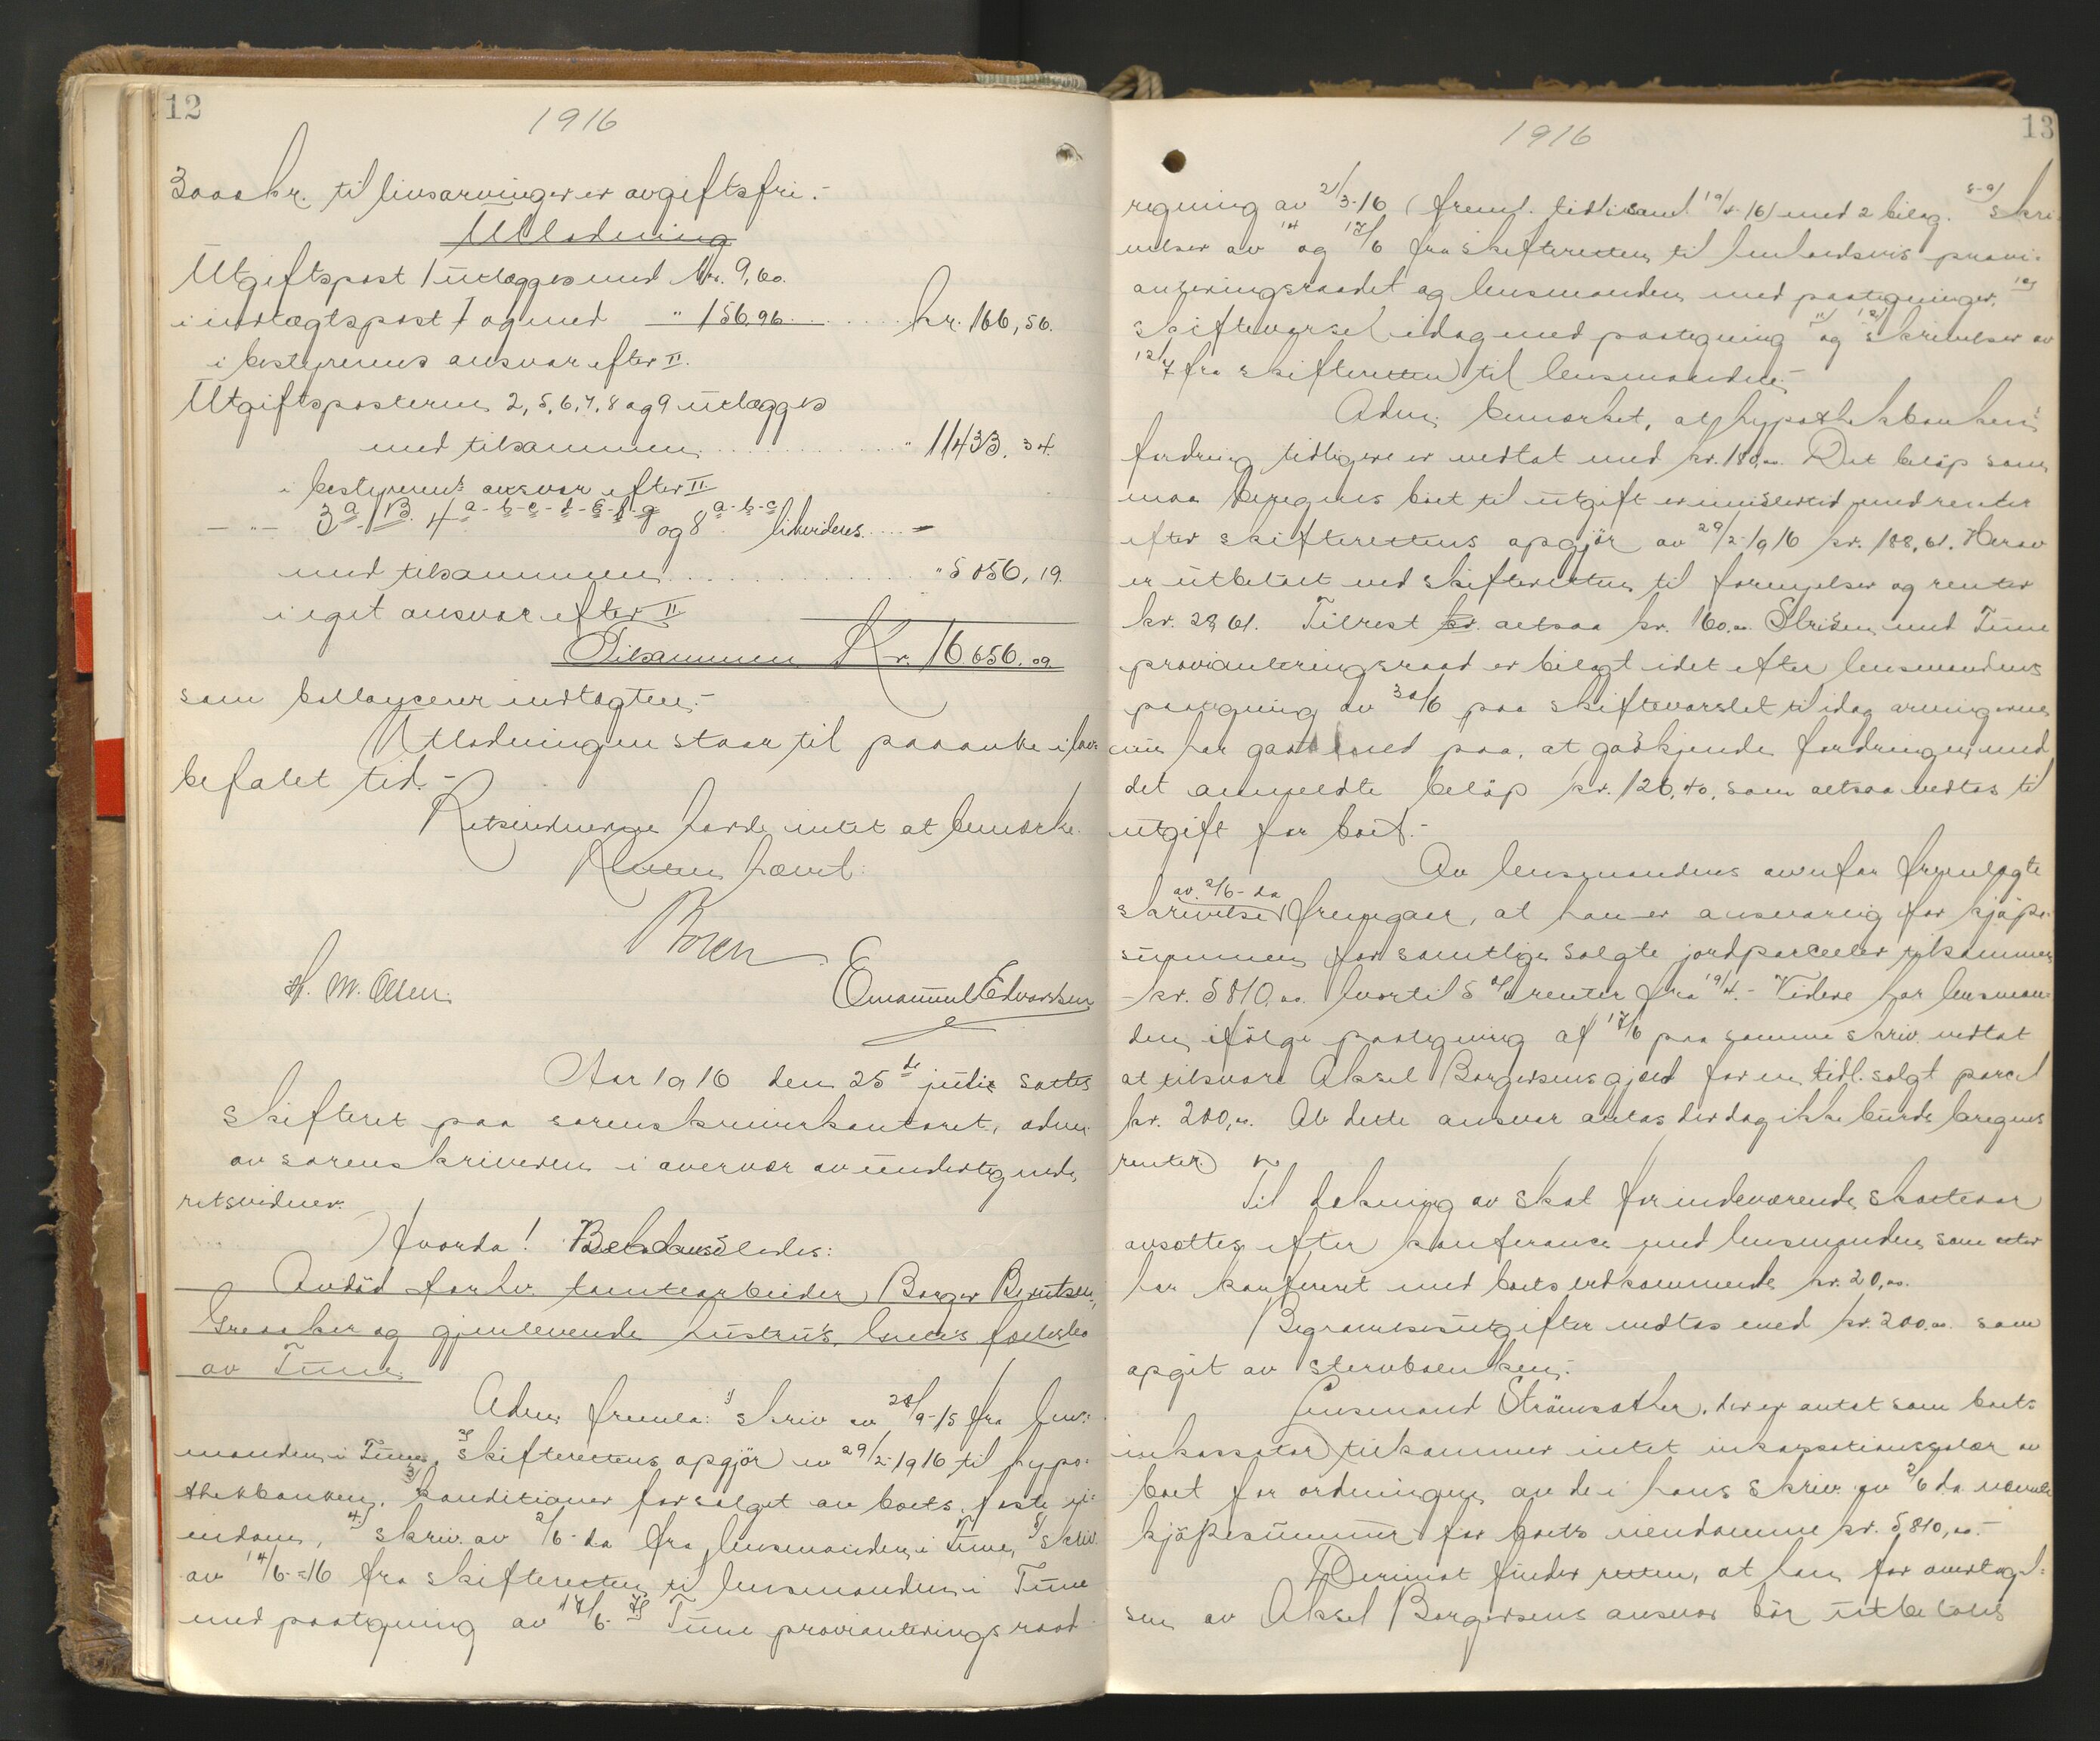 12
1916
3000 kr. til livsarvinger er avgiftsfri.-
Utlodning
Utgiftspost 1 utlægges med kr. 9,60.
i indtægtspost I og med " 156.96 ........ kr. 166,56.
i bestyrerens ansvar efter II.
Utgiftsposterne 2, 5, 6, 7, 8 og 9 utlægges
med tilsammen ............ " 11433.34.
i bestyrerens ansvar efter II
- " - 3a/B. 4 a-b-c-d-e-f-g og 8 a-b-c likvideres ....
med tilsammen ............ " 5056,19.
i eget ansvar efter II
Tilsammen Kr. 16.656.09
som ballancerer indtægten.-
Utlodningen staar til paaanke i lov-
befalet tid.-
Retsvidnerne havde intet at bemærke.
Retten hævet.
H. M. Olsen.
Emanuel Edvardsen
Aar 1916 den 25de juli sattes
skifteret paa sorenskriverkontoret, adm.
av sorenskriveren i overvær av undertegnede
retsvidner.
Hvorda! Behandledes:
Avdød forhv. tomtearbeider Borger Berntsen,
Greaaker og gjenlevende hustru's fællesbo
av Tune
Adm. fremla: 1) skriv av 28/9-15 fra lens-
manden i Tune, 2) skifterettens opgjør av 29/2-1916 til hypo-
thekbanken, 3) konditioner for salget av boets faste ei-
endom, 4) skriv. av 2/6-da fra lensmanden i Tune, 5) skriv.
av 14/6-16 fra skifteretten til lensmanden i Tune
med paategning av 17/6 7) Tune provianteringsraad
13
1916
regning av 2/3-16 (freml. tidl. saml. 19/4-16) med 2 bilag. 8-9) skri-
velser av 14 og 17/6 fra skifteretten til henholdsvis provi-
anteringsraadet og lensmanden med paategninger, 10)
skiftevarsel idag med paategning 11) og 12) skrivelser av
12/7 fra skifteretten til lensmanden.-
Adm. bemerket, at hypothekbankens
fordring tidligere er vedtat med kr. 180,00. Det beløp som
maa beregnes boet til utgift er imidlertid med renter
efter skifterettens opgjør av 29/2-1916 kr. 188,61. Herav
er utbetalt ved skifteretten til fornyelser og renter
kr. 28,61. Tilrest kr. altsaa kr. 160.00 Striden med Tune
provianteringsraad er bilagt idet efter lensmandens
paategning av 30/6 paa skiftevarslet til idag arvingerne
nu har gaat med paa, at godkjende fordringen med
det anmeldte beløp kr. 126,40, som altsaa vedtas til
utgift for boet.-
Av lensmandens ovenfor fremlagte
av 2/6-da
skrivelse fremgaar, at han er ansvarlig for kjøpe-
summen for samtlige solgte jordparceller tilsammen
kr. 5810.00 hvortil 5 % renter fra 19/4.- Videre har lensman-
den ifølge paategning af 17/6 paa samme skriv. vedtat
at tilsvare Aksel Borgersens gjæld for en tidl. solgt parcel
kr. 200,00. Av dette ansvar antas der dog ikke burde beregnes
renter.
Til dækning av skat for indeværende skatteaar
avsattes efter konferance med lensmanden som atter
har konfereret med boets vedkommende kr. 20,00.
Begravelsesutgifter vedtas med kr. 200.00 som
opgit av stervboenken.-
Lensmand Strømsæther, der er antat som boets
inkassator tilkommer intet inkassationssalær av
boet for ordningen av de i hans skriv. av 2/6 da nævnte
kjøpesummer for boets eiendomme kr. 5810,00.-
Derimot finder retten, at han for overtagel-
sen av Aksel Borgersens ansvar bør utbetales